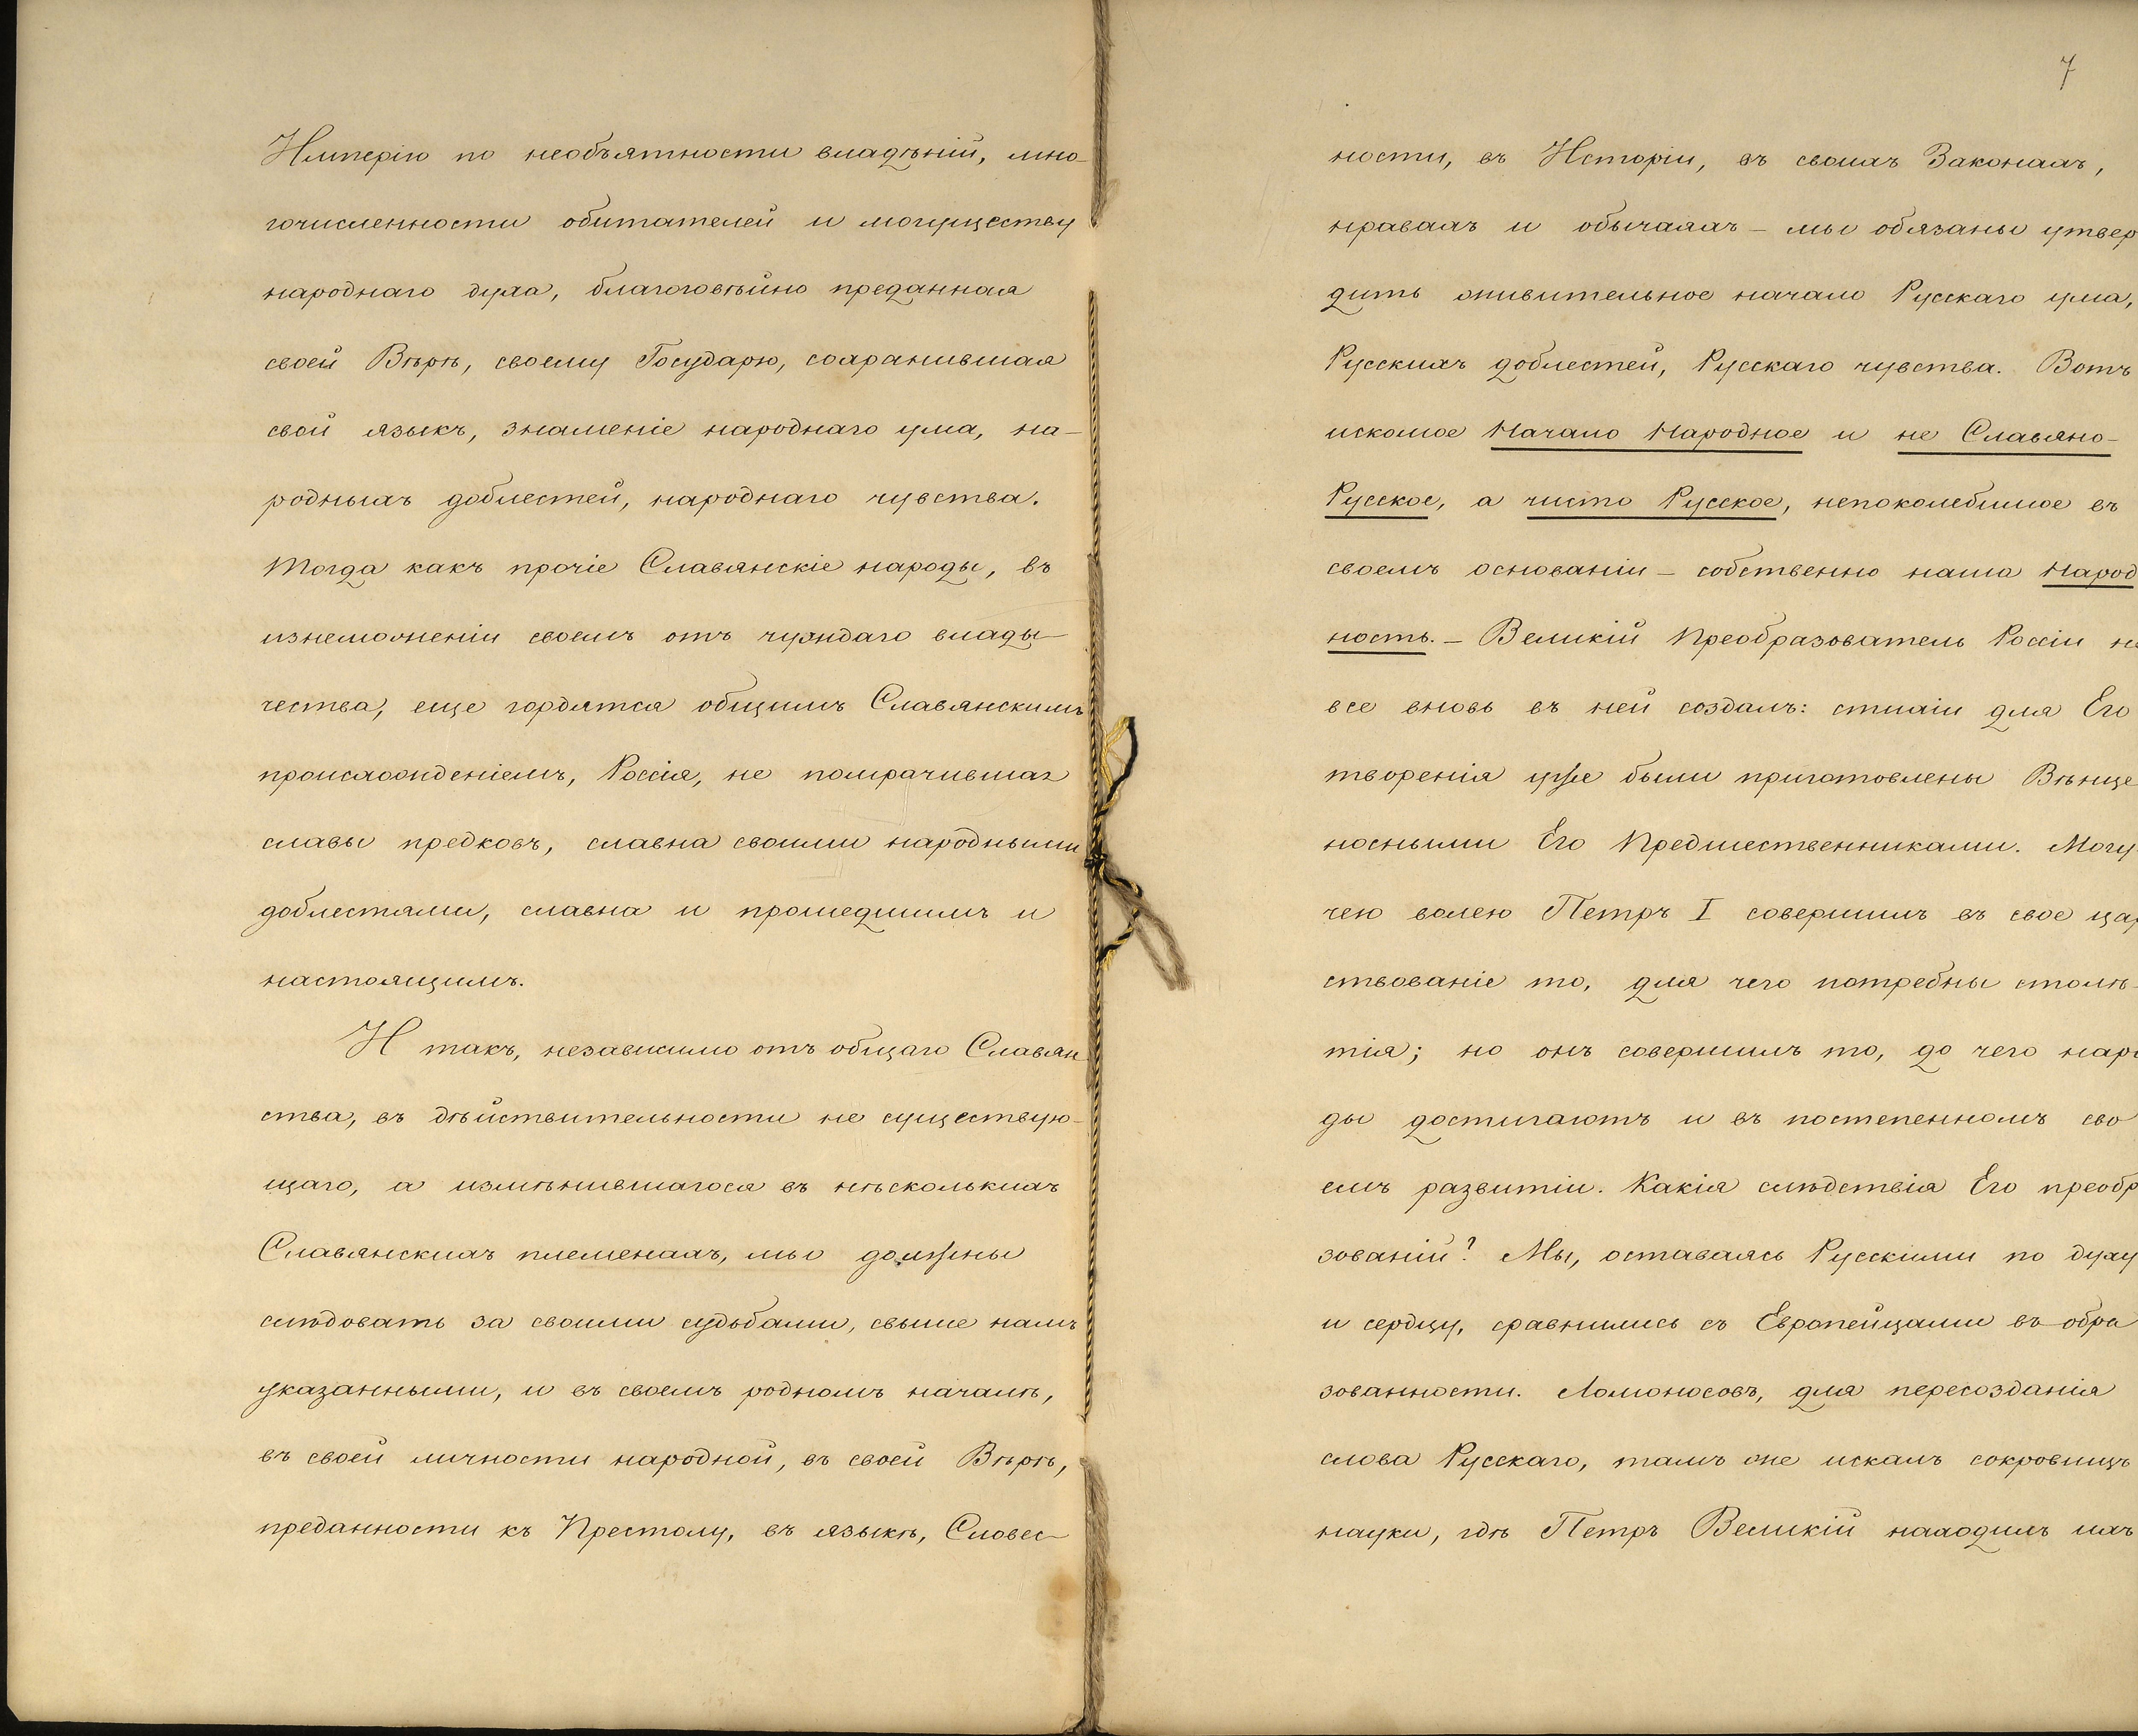 Имперію по необъятности владѣній, мно-
гочисленности обитателей и могуществу
народнаго духа, благоговѣйно преданная
своей Вѣрѣ, своему Государю, сохранившая
свой языкъ, знаменіе народнаго ума, на-
родныхъ доблестей, народнаго чувства.
Тогда какъ прочіе Славянскіе народы, въ
изнеможеніи своемъ отъ чуждаго влады-
чества, еще гордятся общимъ Славянскимъ
происхожденіемъ, Россія, не помрачившая
славы предковъ, славна своими народными
доблестями, славна и прошедшимъ и
настоящимъ.
И такъ, независимо отъ общаго Славян
ства, въ дѣйствительности не существую-
щаго, а измѣнившагося въ нѣсколькихъ
Славянскихъ племенахъ, мы должны
слѣдовать за своими судьбами, свыше намъ
указанными, и въ своемъ родномъ началѣ,
въ своей личности народной, въ своей Вѣрѣ,
преданности къ Престолу, въ языкѣ, Словес-
7
ности, въ Исторіи, въ своихъ Законахъ,
нравахъ и обычаяхъ – мы обязаны утвер
дить живительное начало Русскаго ума,
Русскихъ доблестей, Русскаго чувства. Вотъ
искомое Начало Народное и не Славяно-
Русское, а чисто Русское, непоколебимое въ
своемъ основаніи – собственно наша Народ
ность. – Великій Преобразователь Россіи не
все вновь въ ней создалъ: стихіи для Его
творенія уже были приготовлены Вѣнце
носными Его Предшественниками. Могу-
чею волею Петръ I совершилъ въ свое цар
ствованіе то, для чего потребны столѣ-
тія; но онъ совершилъ то, до чего наро
ды достигаютъ и въ постепенномъ сво
емъ развитіи. Какія слѣдствія Его преобр
зованій? Мы, оставаясь Русскими по духу
и сердцу, сравнились съ Европейцами въ обра
зованности. Ломоносовъ, для пересозданія
слова Русскаго, тамъ же искалъ сокровищъ
науки, гдѣ Петръ Великій находилъ ихъ